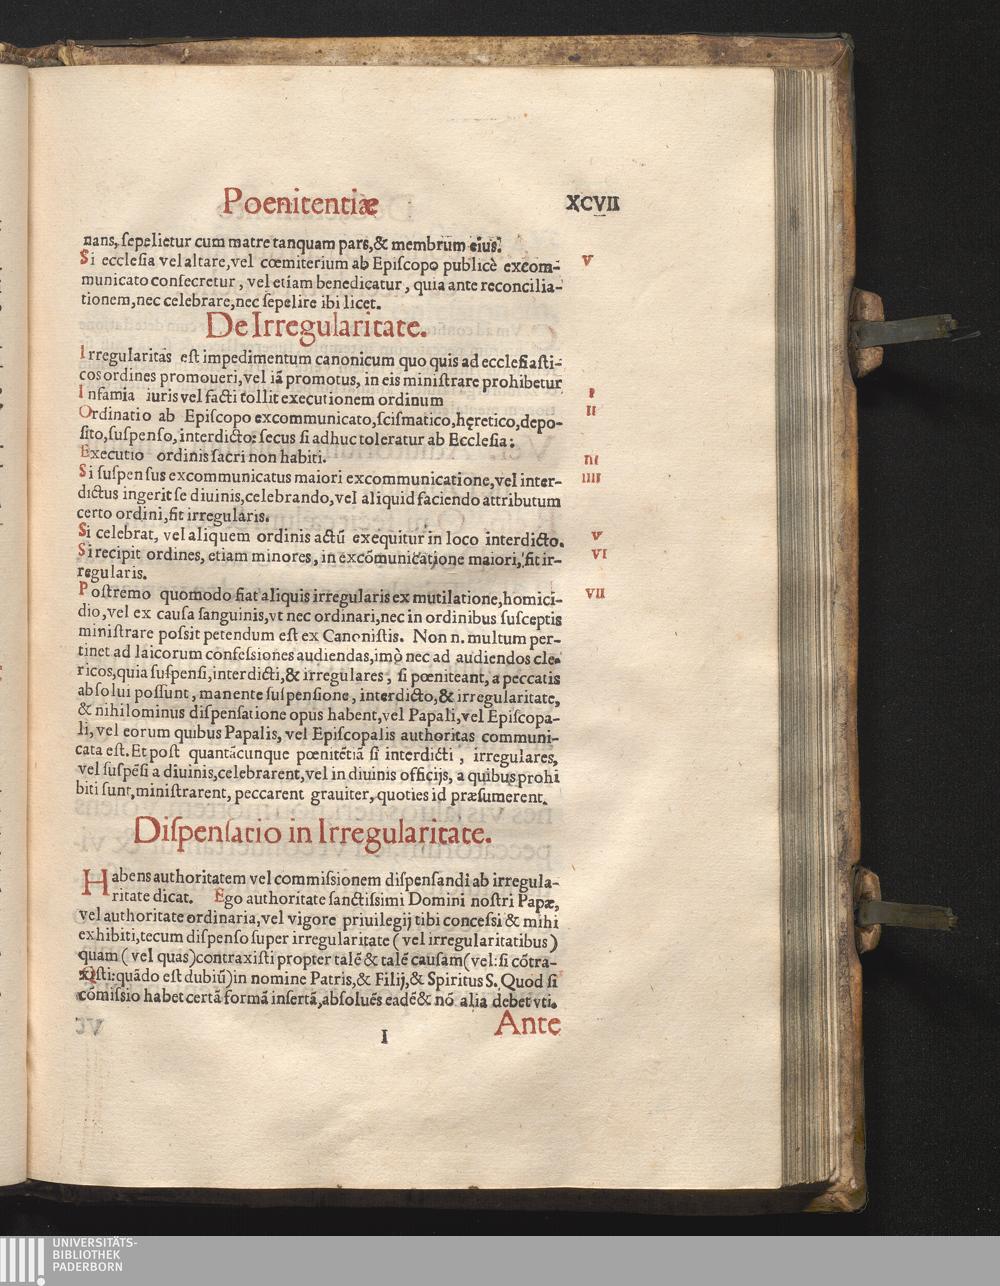 Poenitentiæ XCVII
nans, ſepelietur cum matre tanquam pars,& membrum eius.
Si eccleſia vel altare,vel cœmiterium ab Epiſcopo publicè excom- V
municato conſecretur, vel etiam benedicatur, quia ante reconcilia-
tionem,nec celebrare,nec ſepelire ibi licet.
De Irregularitate.
Irregularitas eſt impedimentum canonicum quo quis ad eccleſiaſti-
cos ordines promoueri,vel iã promotus, in eis miniſtrare prohibetur
Infamia iuris vel facti tollit executionem ordinum I
Ordinatio ab Epiſcopo excommunicato,ſciſmatico,hęretico,depo- II
ſito,ſuſpenſo,interdicto: ſecus ſi adhuc toleratur ab Eccleſia:
Executio ordinis ſacri non habiti. III
Si ſuſpenſus excommunicatus maiori excommunicatione,vel inter- IIII
dictus ingerit ſe diuinis,celebrando,vel aliquid faciendo attributum
certo ordini,fit irregularis.
Si celebrat, vel aliquem ordinis actũ exequitur in loco interdicto. V
Si recipit ordines, etiam minores, in excõmunicatione maiori, fit ir- VI
regularis.
Poſtremo quomodo fiat aliquis irregularis ex mutilatione,homici- VII
dio,vel ex cauſa ſanguinis,vt nec ordinari,nec in ordinibus ſuſceptis
miniſtrare poſsit petendum eſt ex Canoniſtis. Non n. multum per-
tinet ad laicorum confeſsiones audiendas,imò nec ad audiendos cle-
ricos,quia ſuſpenſi,interdicti,& irregulares, ſi pœniteant, a peccatis
abſolui poſſunt, manente ſuſpenſione, interdicto,& irregularitate,
& nihilominus diſpenſatione opus habent,vel Papali,vel Epiſcopa-
li, vel eorum quibus Papalis, vel Epiſcopalis authoritas communi-
cata eſt. Et poſt quantãcunque pœnitẽtiã ſi interdicti, irregulares,
vel ſuſpẽſi a diuinis,celebrarent,vel in diuinis officijs, a quibus prohi
biti ſunt,miniſtrarent, peccarent grauiter, quoties id præſumerent.
Diſpenſatio in Irregularitate.
Habens authoritatem vel commiſsionem diſpenſandi ab irregula-
ritate dicat. Ego authoritate ſanctiſsimi Domini noſtri Papæ,
vel authoritate ordinaria,vel vigore priuilegij tibi conceſsi & mihi
exhibiti,tecum diſpenſo ſuper irregularitate (vel irregularitatibus)
quam (vel quas)contraxiſti propter talẽ & talẽ cauſam(vel:ſi cõtra-
xiſti:quãdo eſt dubiũ)in nomine Patris,& Filij,& Spiritus S. Quod ſi
cõmiſsio habet certã formã inſertã,abſoluẽs eadẽ & nõ alia debet vti.
I Ante
UNIVERSITÄTS-
BIBLIOTHEK
PADERBORN